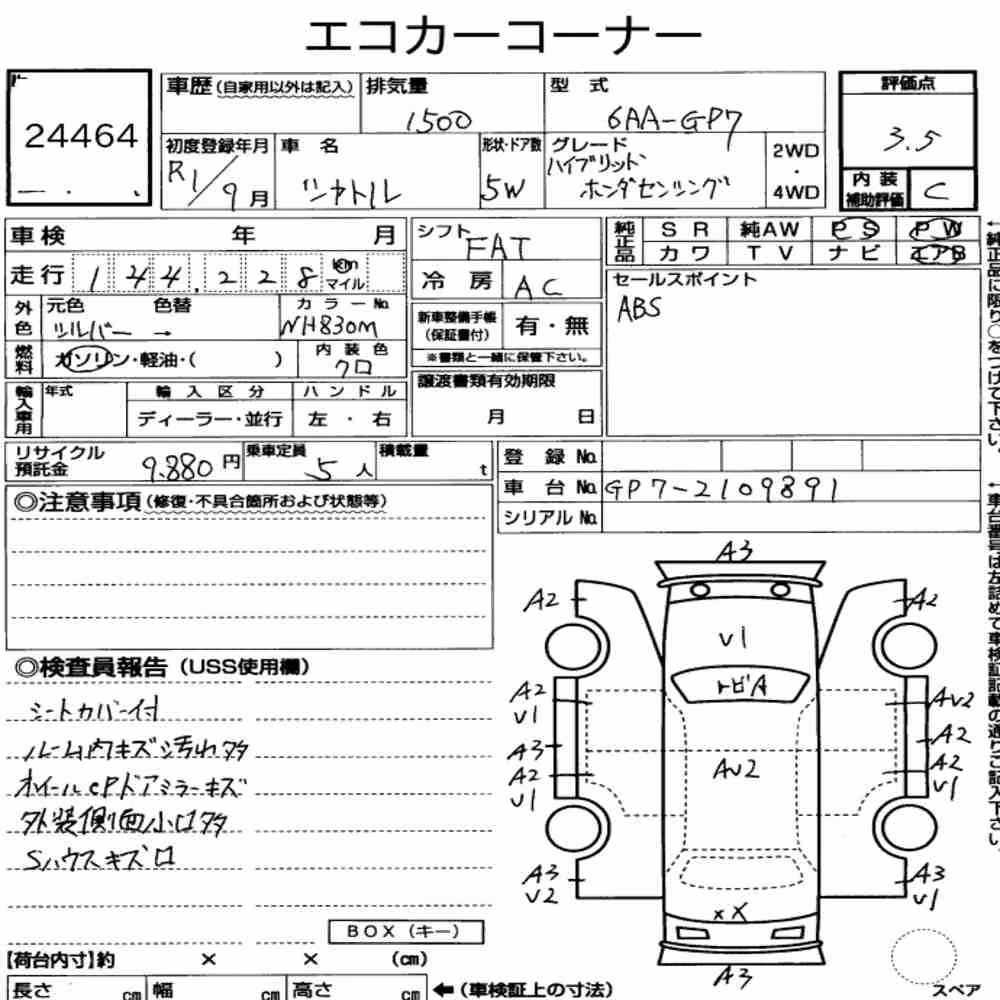 エコカーコーナー
24464
車歴(自家用以外は記入) 排気量 1500 型式 6AA-GP7
評価点 3.5
初度登録年月 R1/9月 車名 シャトル 形状・ドア数 5W グレード ハイブリッド ホンダセンシング 2WD・4WD
内装補助評価 C
車検 年 月
シフト FAT
純正品 SR 純AW PS PW
カワ TV ナビ エアB
走行 144,228 km マイル
冷房 AC
セールスポイント
ABS
外色 元色 シルバー → 色替 カラーNo. NH830M
新車整備手帳(保証書付) 有・無
※書類と一緒に保管下さい。
燃料 ガソリン・軽油・( ) 内装色 クロ
輸入車用 年式 輸入区分 ハンドル
ディーラー・並行 左・右
譲渡書類有効期限
月 日
リサイクル預託金 9.880円 乗車定員 5人 積載量 t
登録No.
車台No. GP7-2109891
シリアルNo.
←純正品に限り○をつけて下さい。
←車台番号は左詰めで車検証記載の通りご記入下さい。
◎注意事項(修復・不具合箇所および状態等)
◎検査員報告(USS使用欄)
シートカバー付
ルーム内キズ汚れ多
ホイールcPドアミラーキズ
外装側面小ロ多
Sハウスキズロ
BOX(キー)
【荷台内寸】約 × × (cm)
長さ cm 幅 cm 高さ cm ←(車検証上の寸法)
A3
A2 A2
V1
トビA
A2 V1 AV2
A3 A2
A2 V1 AV2 A2 V1
A3 V2 A3 V1
XX
A3
スペア